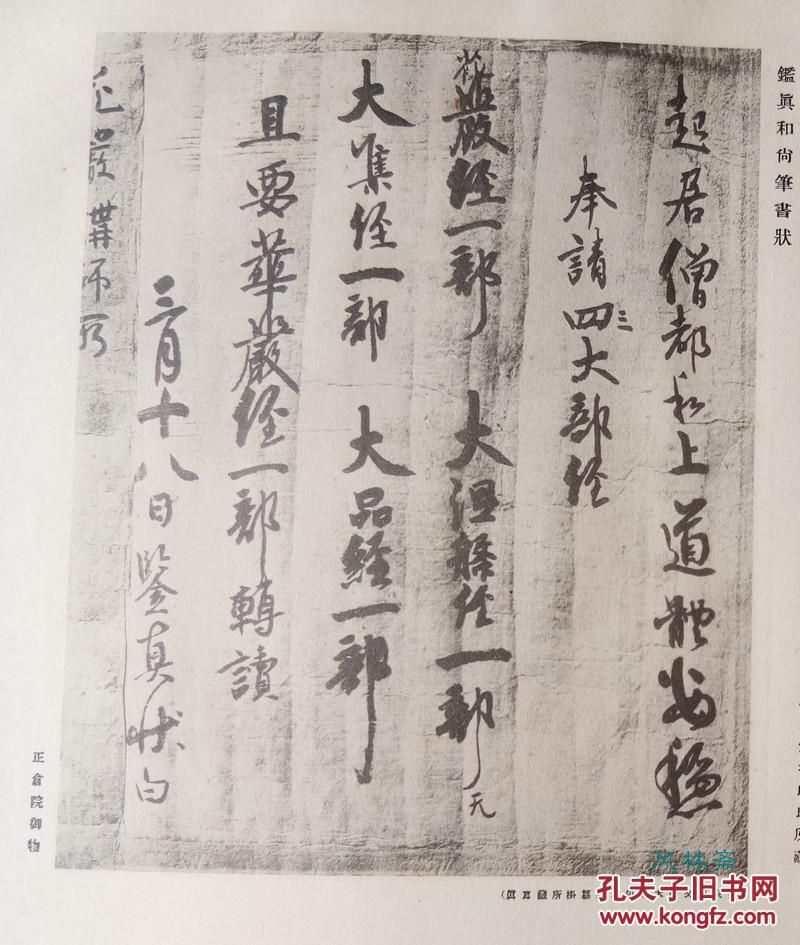 鑑眞和尚筆書狀
起居僧都和上道體安穩
奉請四大部经
三
花嚴経一部 大涅槃经一部
无
大集经一部 大品経一部
且要華嚴经一部轉讀
三月十八日鑒真状白
嚴講師
正倉院御物
风林斋
孔夫子旧书网
www.kongfz.com